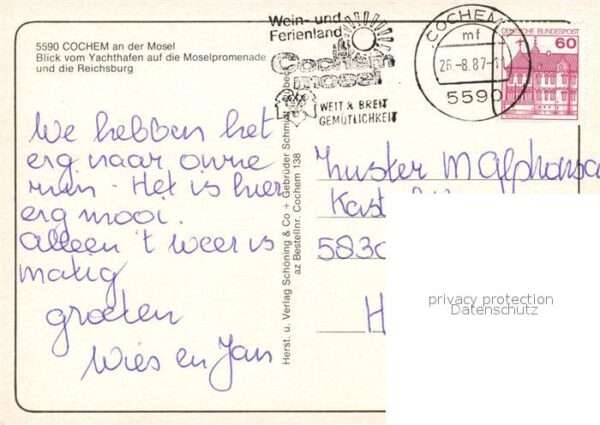 5590 COCHEM an der Mosel
Blick vom Yachthafen auf die Moselpromenade
und die Reichsburg
Wein- und
Ferienland
Cochem
mosel
WEIT & BREIT
GEMÜTLICHKEIT
COCHEM
mf
26.-8.87-11
5590
DEUTSCHE BUNDESPOST
60
We hebben het
erg naar onze
zin. Het is hier
erg mooi.
alleen 't weer is
matig
groeten
Wies en Jan
Herst. u. Verlag Schöning & Co + Gebrüder Schmidt
az Bestellnr. Cochem 138
Zuster M Alphonsa
Kast
5830
H
privacy protection
Datenschutz